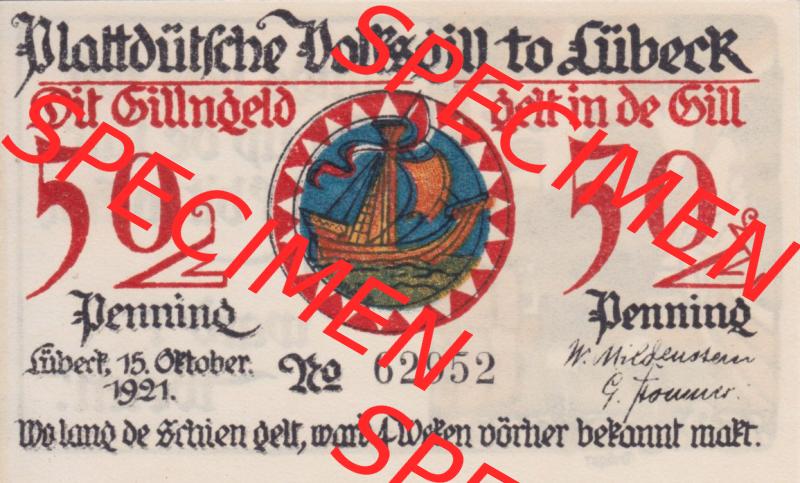 Plattdütsche Volksgill to Lübeck
Dit Gillngeld gelt in de Gill
50 50
Penning Penning
Lübeck, 15. Oktober.
1921.
No 62052
W. Mildenstein
Wo lang de Schien gelt, ward 4 Weken vörher bekannt makt.
SPECIMEN
SPECIMEN
SPE